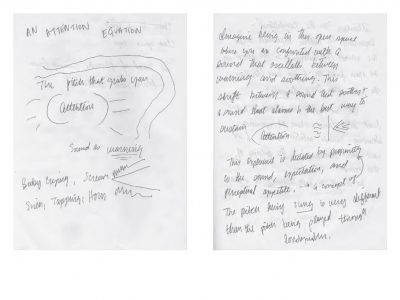 AN ATTENTION EQUATION
The pitch that grabs your
Attention
Sound as warning
Baby Crying, Scream
Siren, Tapping, Horn
Imagine being in this open space
where you are confronted with a
sound that oscillates between
warning and soothing. This
shift between a sound that soothes &
a sound that alarms is the best way to
sustain Attention
This experience is decided by proximity
to the sound, expectation, and
perceptual appetite. → a concept of
The pitch being sung is very different
than the pitch being played through
loudspeaker.